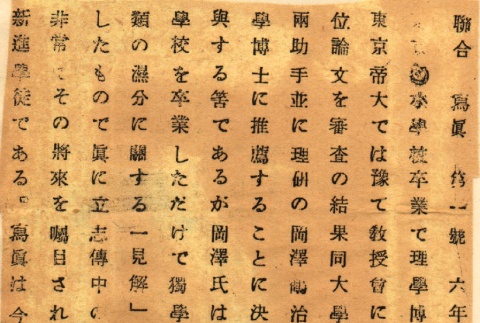 聯合 寫眞 第一號 六年
學校卒業で理學博
東京帝大では豫て教授會に
位論文を審査の結果同大學
兩助手並に理硏の岡澤 治
學博士に推薦することに決
與する筈であるが岡澤氏は
學校を卒業しただけで獨學
類の濕分に關する一見解」
したもので眞に立志傳中の
非常にその將來を囑目され
新進學徒である。寫眞は今